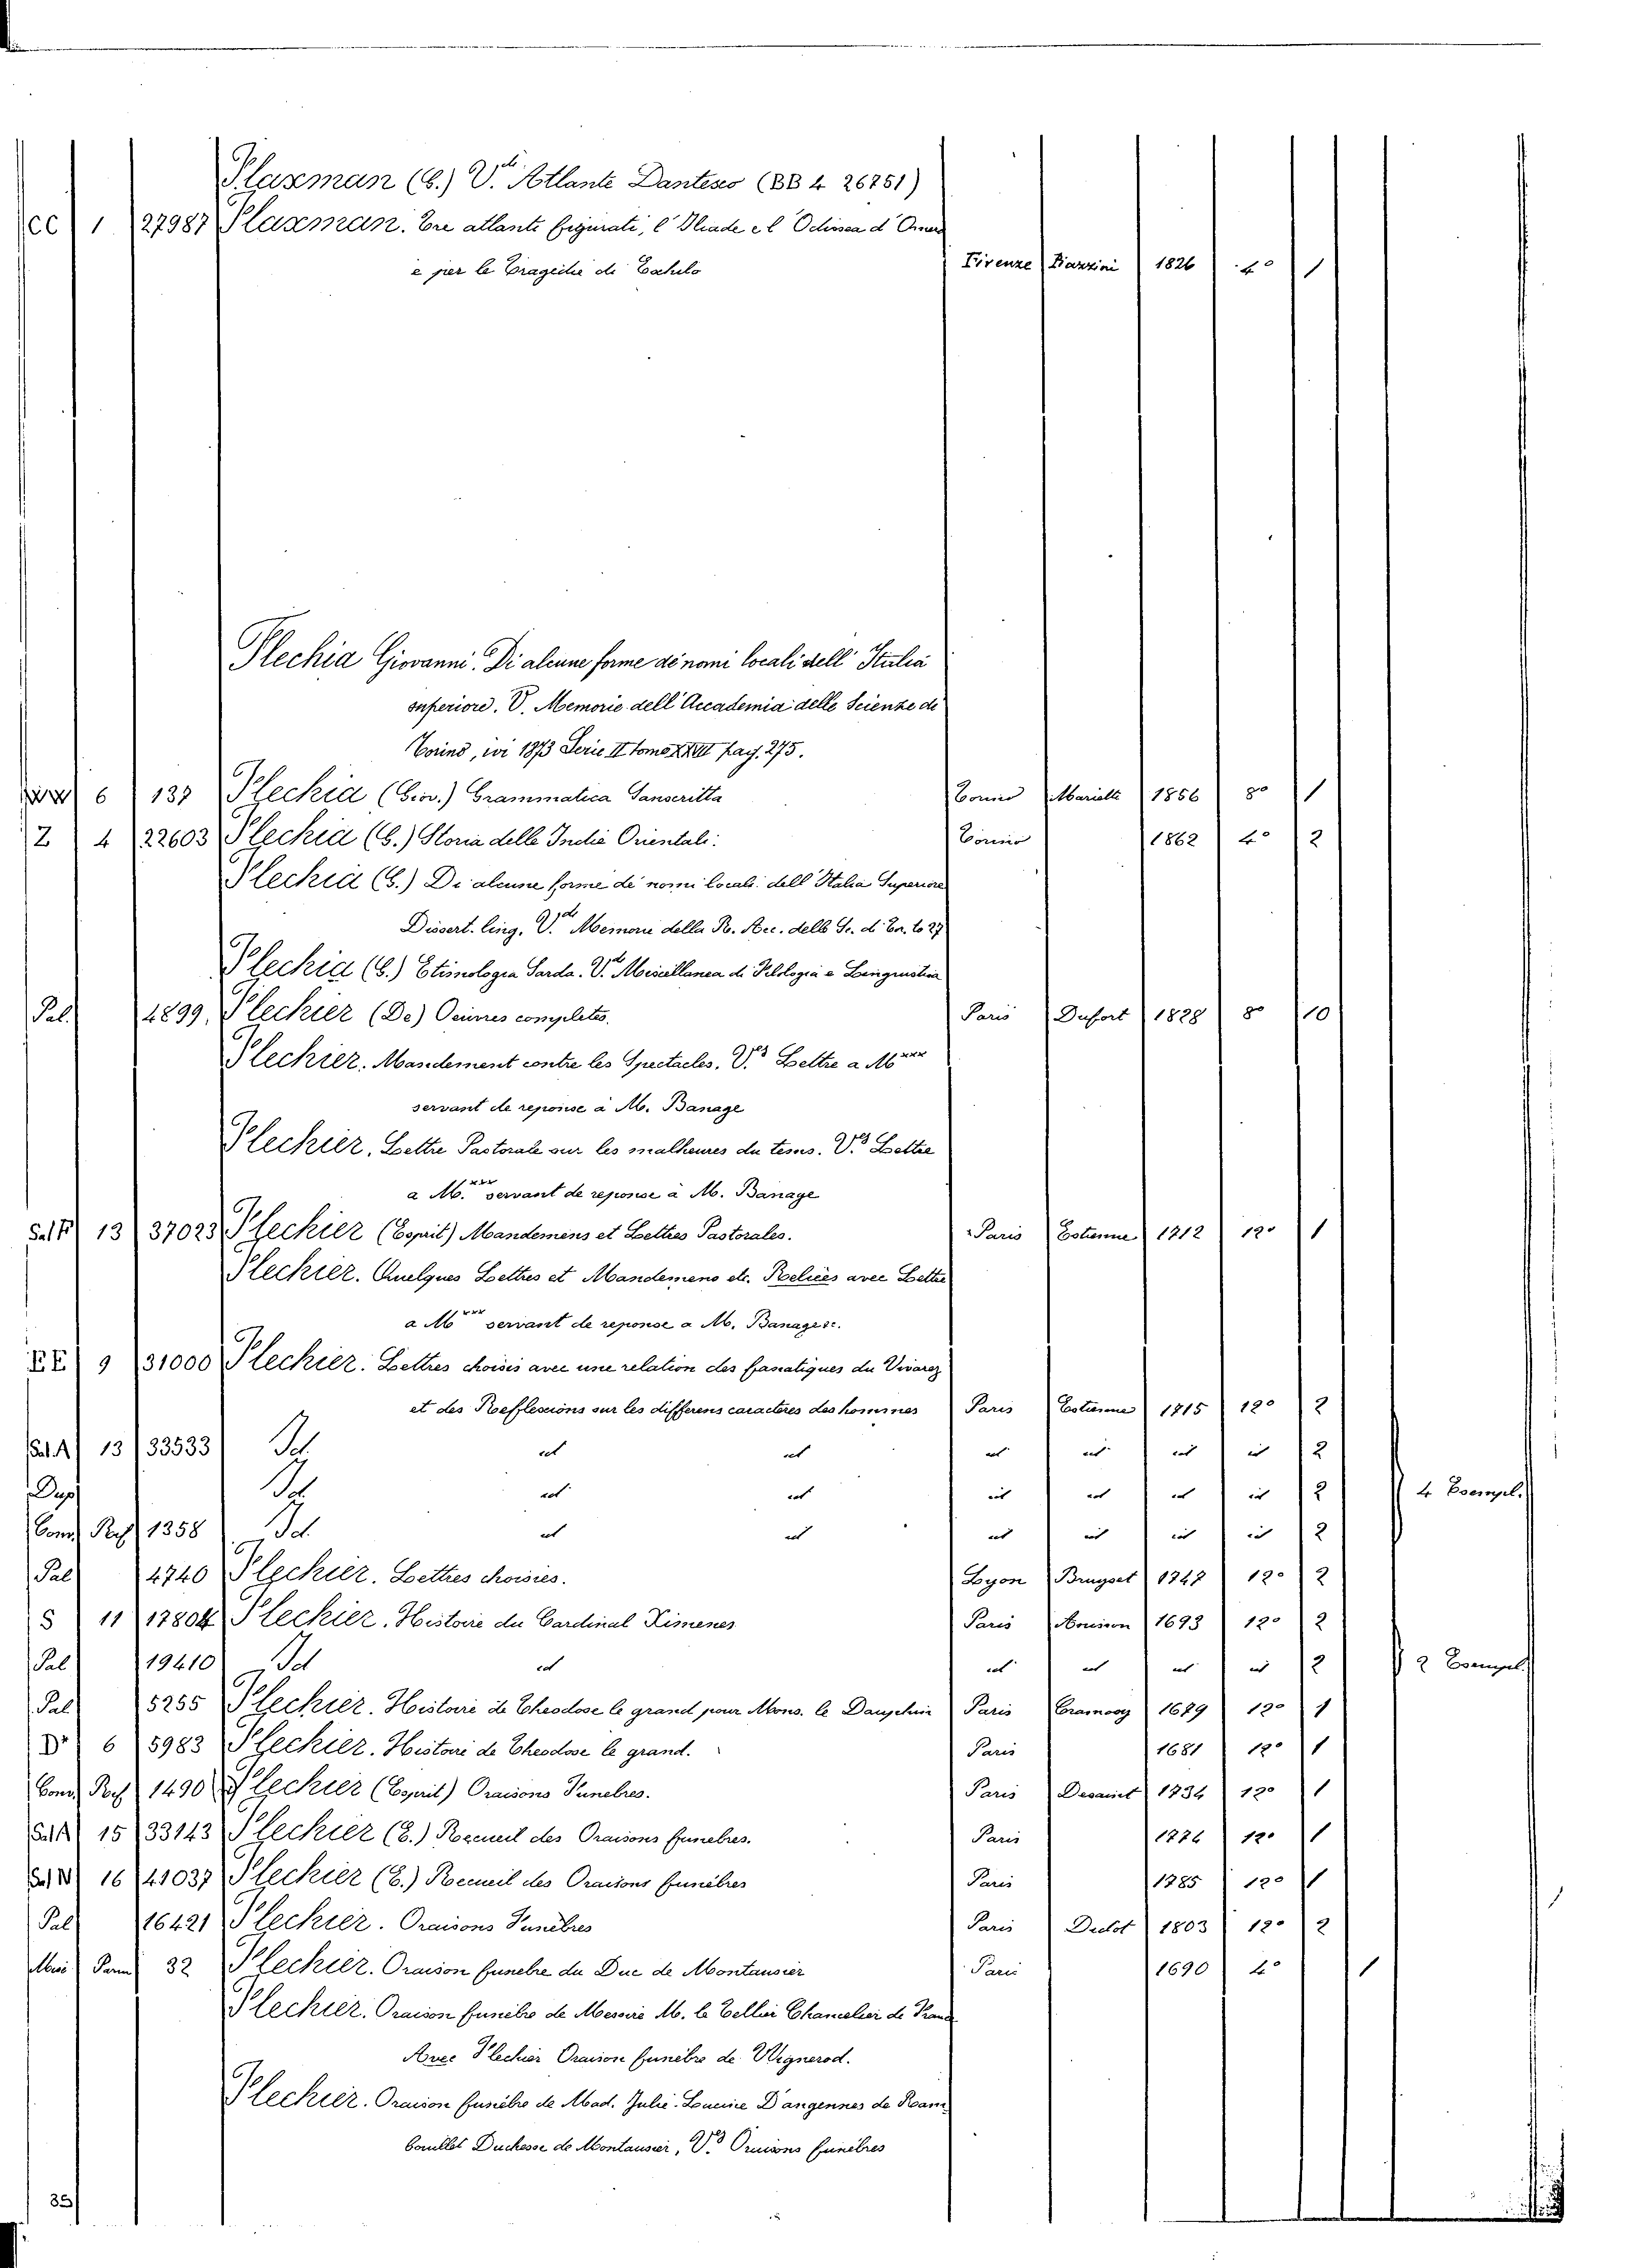 Flaxman (G.) V.di Atlante Dantesco (BB 4 26751)
CC 1 27987 Flaxman. Tre atlante figurati, l'Iliade e l'Odissea d'Omero
e per le Tragedie di Eschilo Firenze Pazzini 1826 4° 1
Flechia Giovanni. Di alcune forme de'nomi locali dell'Italia
superiore. V. Memorie dell'Accademia delle Scienze di
Torino, ivi 1873 Serie II tomo XXVII pag. 275.
6 137 Flechia (Giov.) Grammatica Sanscritta Torino Marietti 1856 8° 1
Z 4 22603 Flechia (G.) Storia delle Indie Orientali: Torino 1862 4° 2
Flechia (G.) Di alcune forme de nomi locali dell'Italia Superiore
Dissert. ling. V.di Memorie della R. Acc. delle Sc. di To. to 27
Flechia (G.) Etimologia Sarda. V.di Miscellanea di Filologia e Linguistica
Pal. 4899. Flechier (De) Oeuvres completes. Paris Dufort 1828 8° 10
Flechier. Mandement contre les Spectacles. V.es Lettre a M.xxx
servant de reponse à M. Banage
Flechier. Lettre Pastorale sur les malheures du tems. V.es Lettre
a M.xxx servant de reponse à M. Banage
13 37023 Flechier (Esprit) Mandemens et Lettres Pastorales. Paris Estienne 1712 12° 1
Flechier. Quelques Lettres et Mandemens etc. Reliées avec Lettre
a M.xxx servant de reponse a M. Banage &c.
EE 9 31000 Flechier. Lettres choisis avec une relation des fanatiques du Vivarez
et des Refflexions sur les differens caracteres des hommes Paris Estienne 1715 12° 2
Sal.A 13 33533 Id. id id id id id id 2
Dup Id. id id id id id id 2 4 Esempl.
Cons Ref 1358 Id. id id id id id id 2
Pal 4740 Flechier. Lettres choisies. Lyon Bruyset 1747 12° 2
S 11 17804 Flechier. Histoire du Cardinal Ximenes Paris Anisson 1693 12° 2
Pal 19410 Id id id id id id 2 2 Esempl.
Pal 5255 Flechier. Histoire de Theodose le grand pour Mons. le Dauphin Paris Cramoisy 1679 12° 1
6 5983 Flechier. Histoire de Theodose le grand. Paris 1681 12° 1
Cons Ref 1490 Flechier (Esprit) Oraisons Funebres. Paris Desaint 1734 12° 1
Sal.A 15 33143 Flechier (E.) Recueil des Oraisons funebres. Paris 1774 12° 1
16 41037 Flechier (E.) Recueil des Oraisons funèbres Paris 1785 12° 1
Pal 16421 Flechier. Oraisons Funèbres Paris Didot 1803 12° 2
Misc Parm 32 Flechier. Oraison funebre du Duc de Montausier Paris 1690 4° 1
Flechier. Oraison funèbre de Messire M. le Tellier Chancelier de France
Avec Flechier Oraison funèbre de Wignerod.
Flechier. Oraison funèbre de Mad. Julie-Loucine D'angennes de Ram
bouillet Duchesse de Montausier, V.es Oraisons funèbres
35